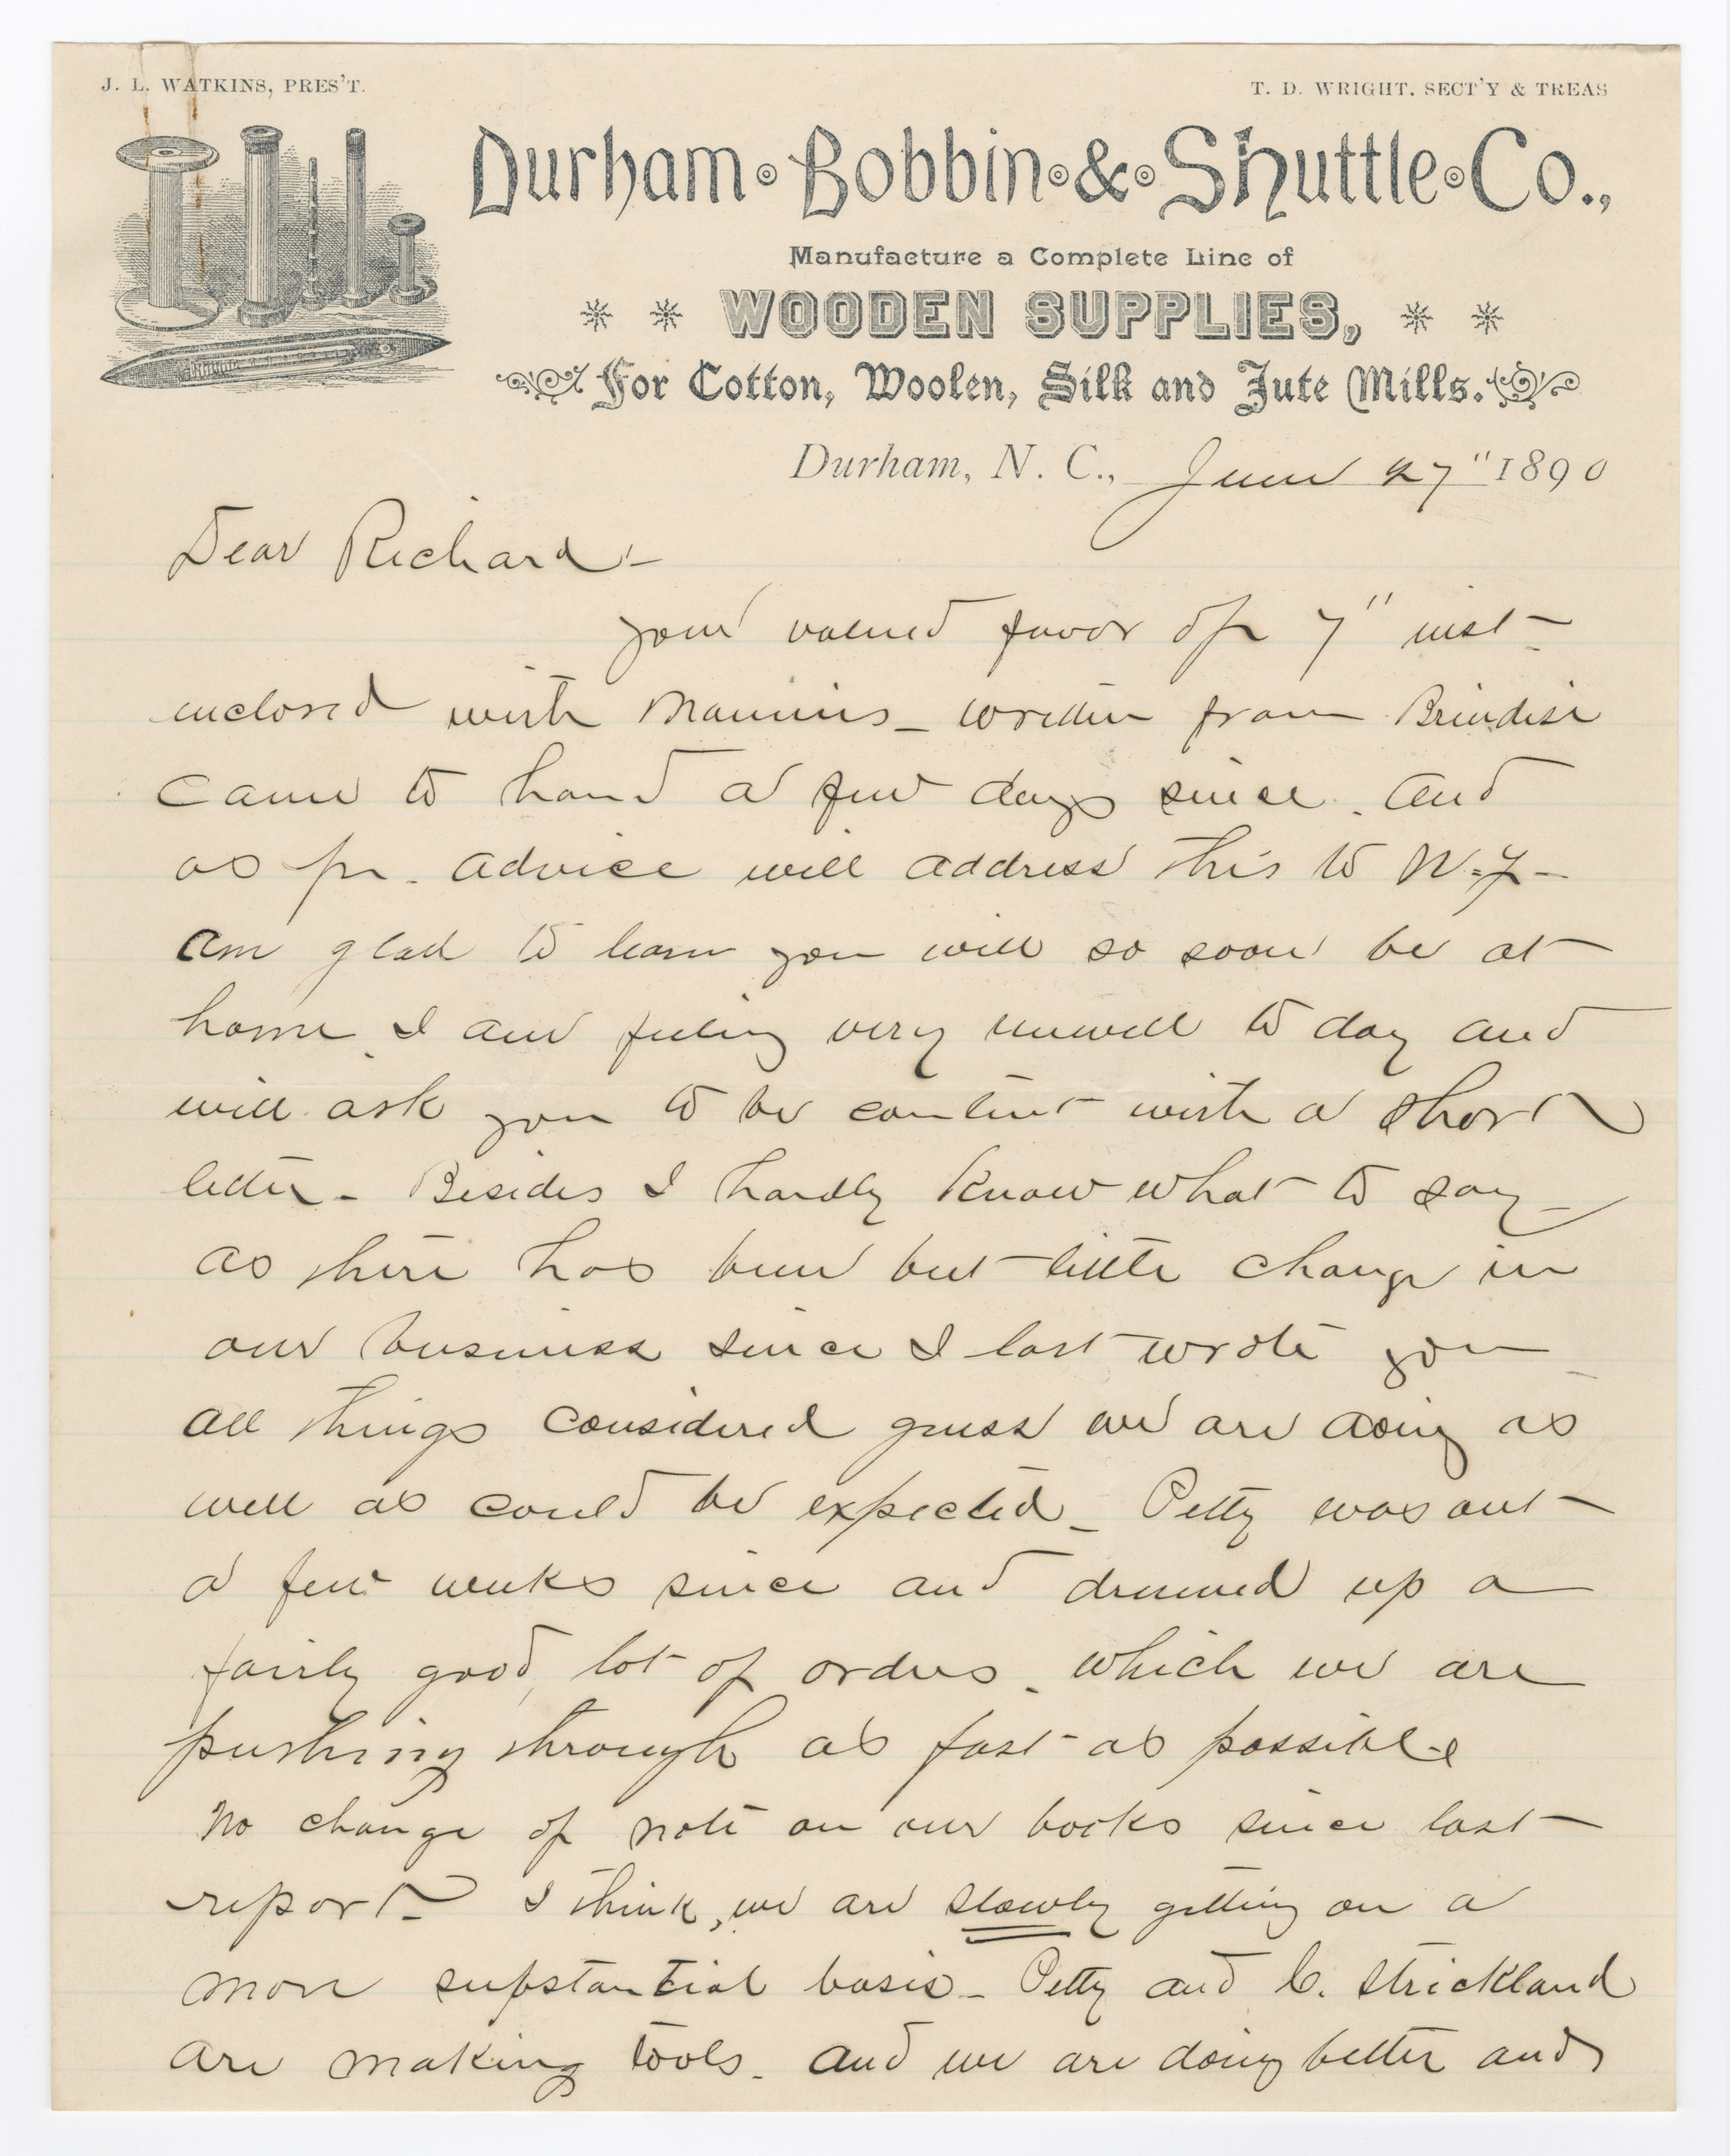 J. L. WATKINS, PRES'T.
T. D. WRIGHT. SECT'Y & TREAS
Durham Bobbin & Shuttle Co.,
Manufacture a Complete Line of
WOODEN SUPPLIES,
For Cotton, Woolen, Silk and Jute Mills.
Durham, N. C., June 27" 1890
Dear Richard -
your valued favor of 7" inst -
enclosed with Mamies - written from Brindisi
came to hand a few days since. and
as pr. advice will address this to N.Y -
am glad to learn you will so soon be at
home. I am feeling very unwell to day and
will ask you to be content with a short
letter - Besides I hardly know what to say -
as there has been but little change in
our business since I last wrote you
all things considered guess we are doing as
well as could be expected - Petty was out
a few weeks since and drumed up a
fairly good, lot of orders. which we are
pushing through as fast as possible
No change of note on our books since last
report - I think, we are slowly getting on a
more substantial basis - Petty and C. Strickland
are making tools. and we are doing better and